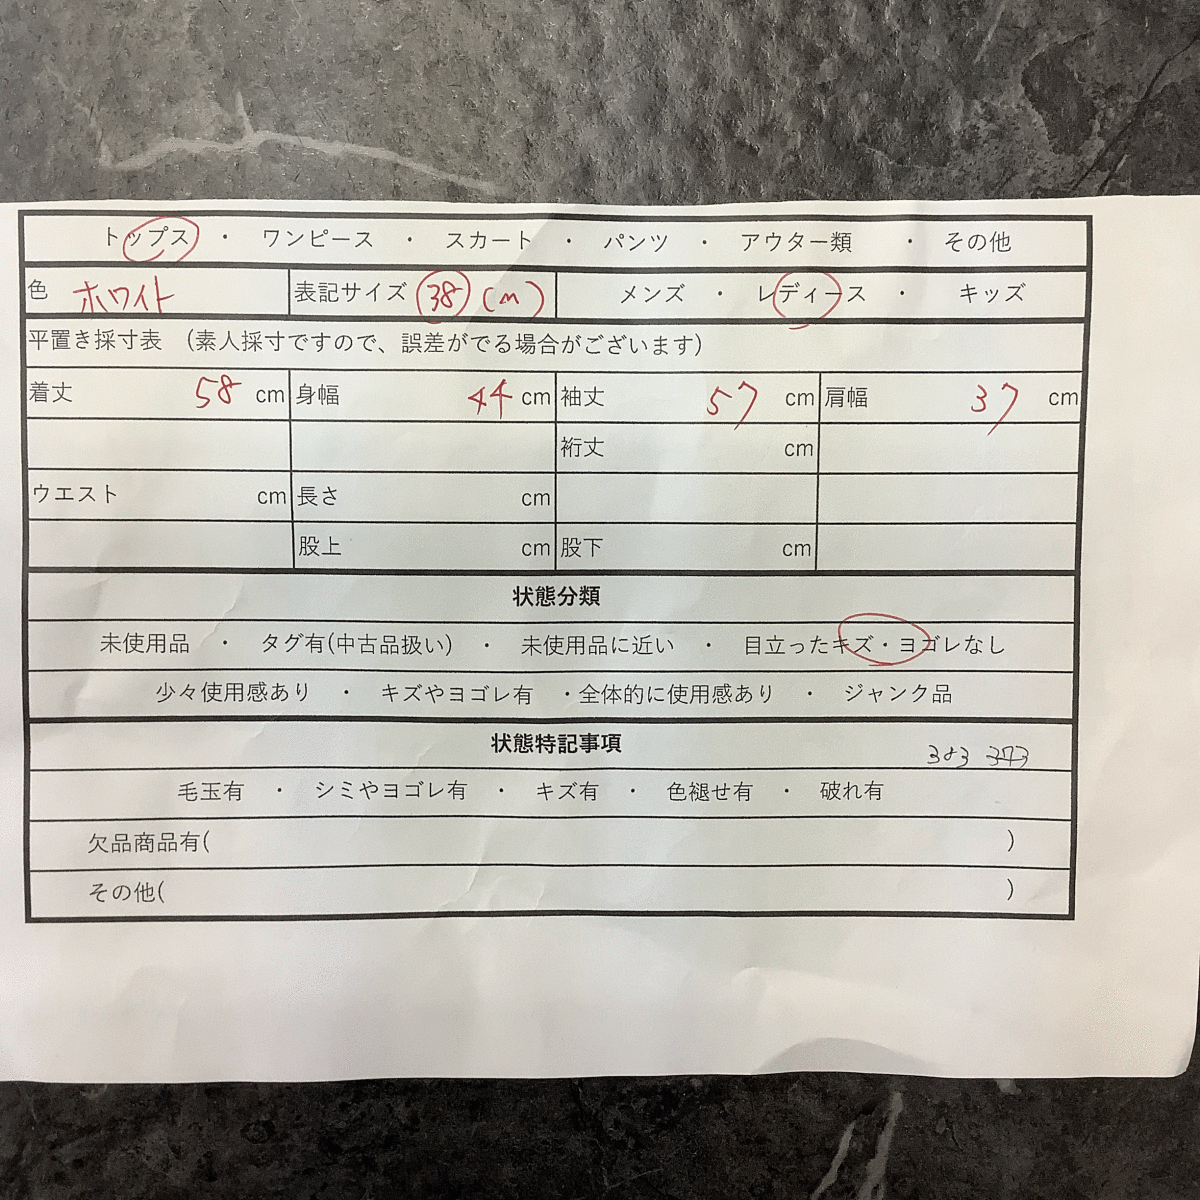 トップス ・ ワンピース ・ スカート ・ パンツ ・ アウター類 ・ その他
色 ホワイト 表記サイズ 38 (m) メンズ ・ レディース ・ キッズ
平置き採寸表 (素人採寸ですので、誤差がでる場合がございます)
着丈 58 cm 身幅 44 cm 袖丈 57 cm 肩幅 37 cm
裄丈 cm
ウエスト cm 長さ cm
股上 cm 股下 cm
状態分類
未使用品 ・ タグ有(中古品扱い) ・ 未使用品に近い ・ 目立ったキズ・ヨゴレなし
少々使用感あり ・ キズやヨゴレ有 ・全体的に使用感あり ・ ジャンク品
状態特記事項 383
毛玉有 ・ シミやヨゴレ有 ・ キズ有 ・ 色褪せ有 ・ 破れ有
欠品商品有( )
その他( )